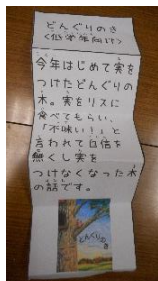 どんぐりのき
<低学年向け>
今年はじめて実を
つけたどんぐりの
木。実をリスに
食べてもらい、
「不味い！」と
言われて自信を
無くし実を
つけなくなった木
の話です。
どんぐりのき